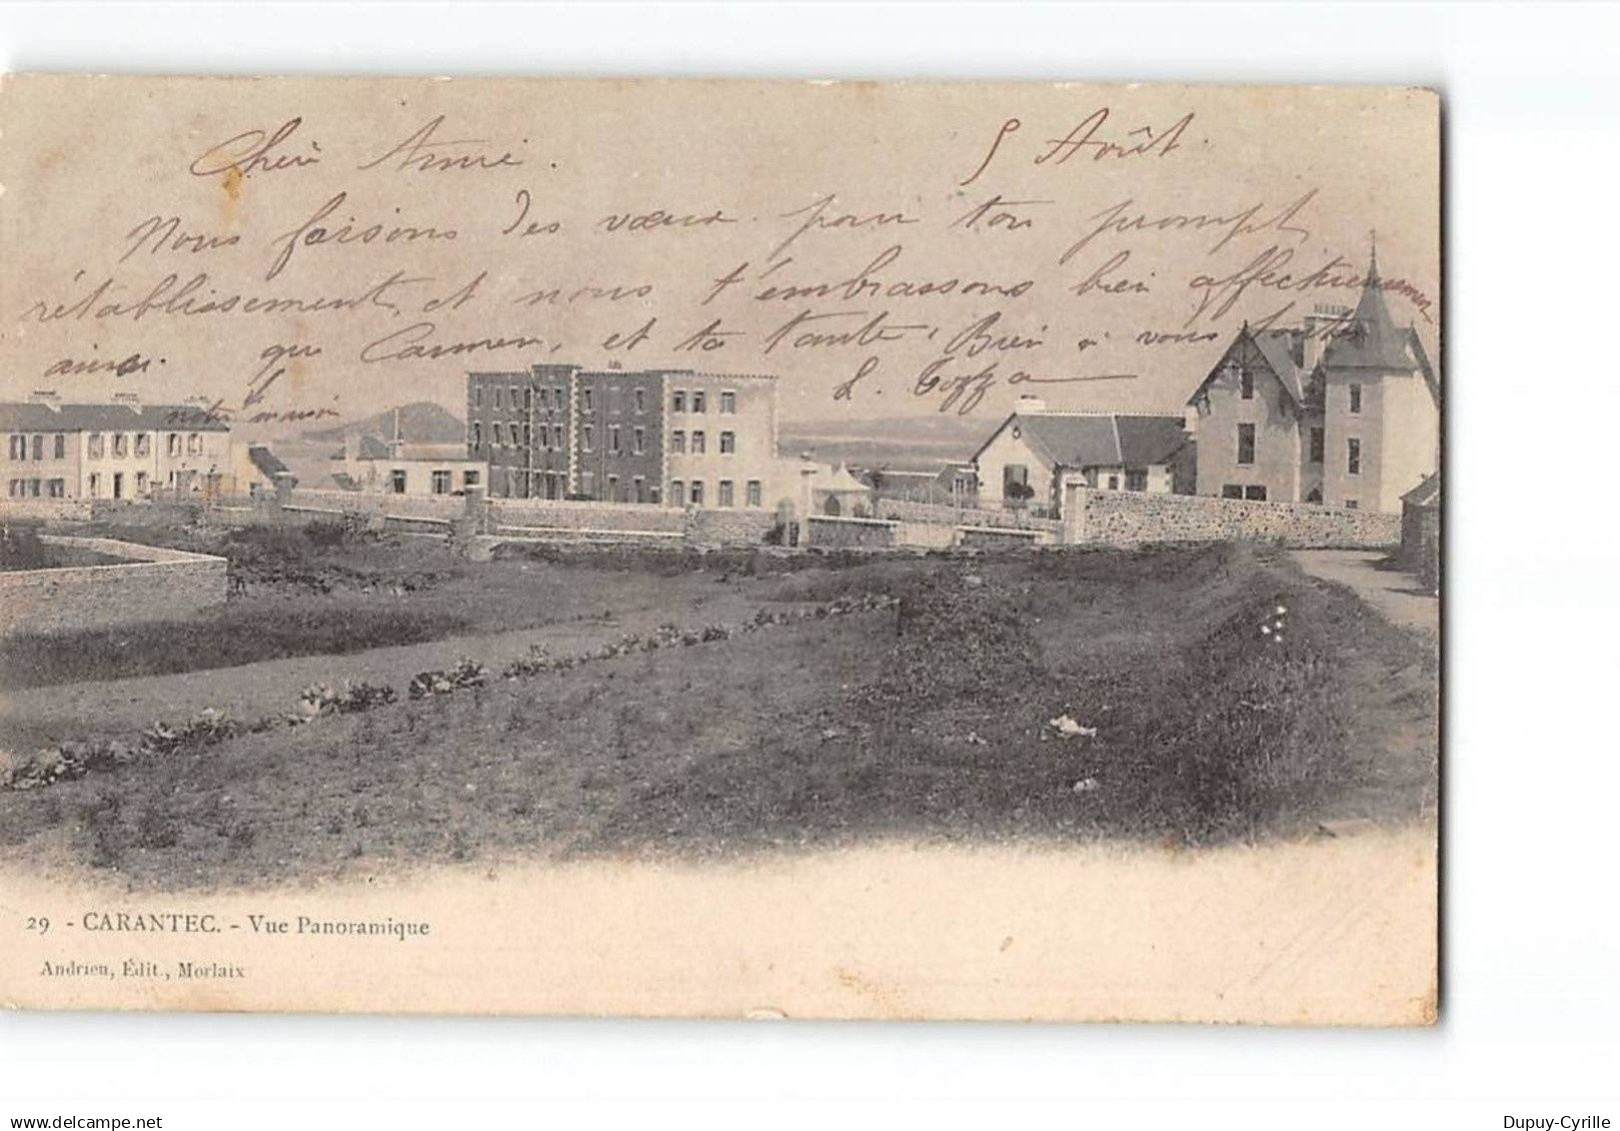 5 Août.
Chère Amie.
Nous faisons des vœux pour ton prompt
rétablissement, et nous t'embrassons bien affectueusement
ainsi que Carmen, et ta tante. Bien à vous toutes
notre maison
29 - CARANTEC. - Vue Panoramique
Andrieu, Édit., Morlaix
delcampe.net
Dupuy-Cyrille